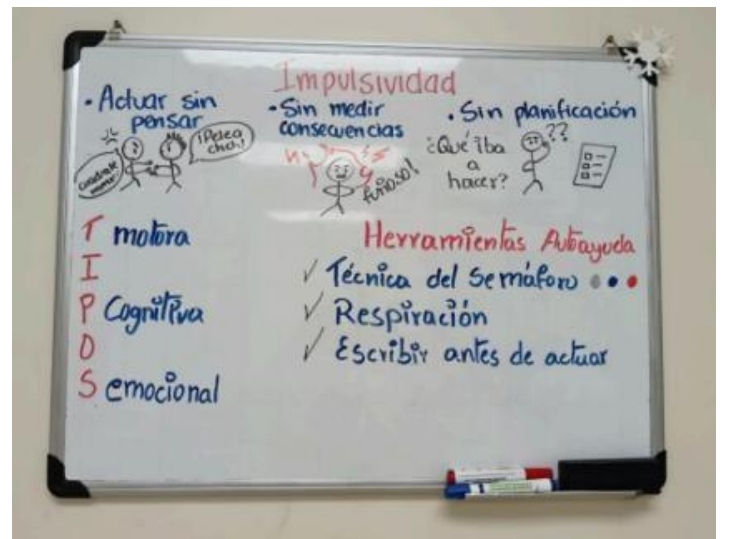 Impulsividad
• Actuar sin
pensar
• Sin medir
consecuencias
• Sin planificación
¡Pelea
¿Qué iba
a
hacer?
??
furioso!
TIPOS
motora
Cognitiva
emocional
Herramientas Autoayuda
✓ Técnica del Semáforo
✓ Respiración
✓ Escribir antes de actuar